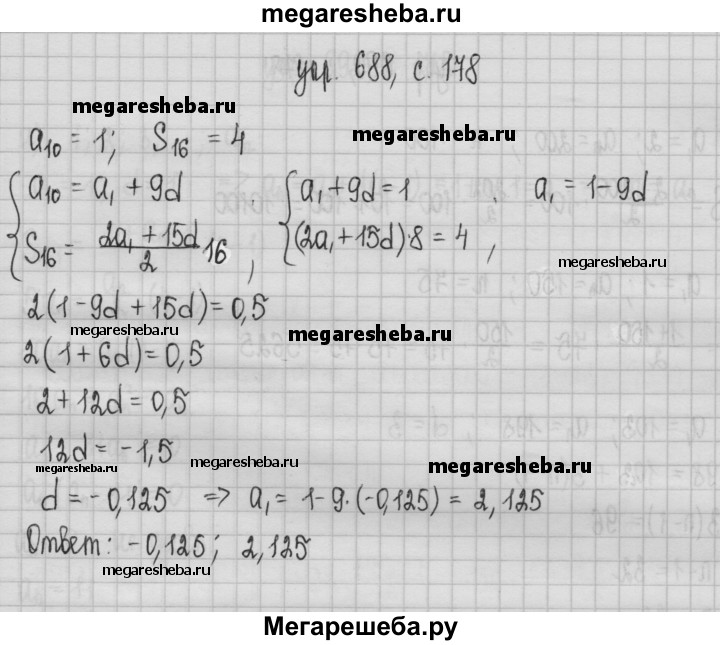 megaresheba.ru
упр. 688, с. 178
megaresheba.ru
megaresheba.ru
a₁₀ = 1; S₁₆ = 4
{ a₁₀ = a₁ + 9d , { a₁ + 9d = 1 , a₁ = 1 - 9d
S₁₆ = (2a₁ + 15d)/2 16 , (2a₁ + 15d)·8 = 4 ,
megaresheba.ru
2(1 - 9d + 15d) = 0,5
megaresheba.ru
megaresheba.ru
2(1 + 6d) = 0,5
2 + 12d = 0,5
12d = -1,5
megaresheba.ru
megaresheba.ru
megaresheba.ru
d = -0,125 => a₁ = 1 - 9·(-0,125) = 2,125
Ответ: -0,125; 2,125
megaresheba.ru
Мегарешеба.ру